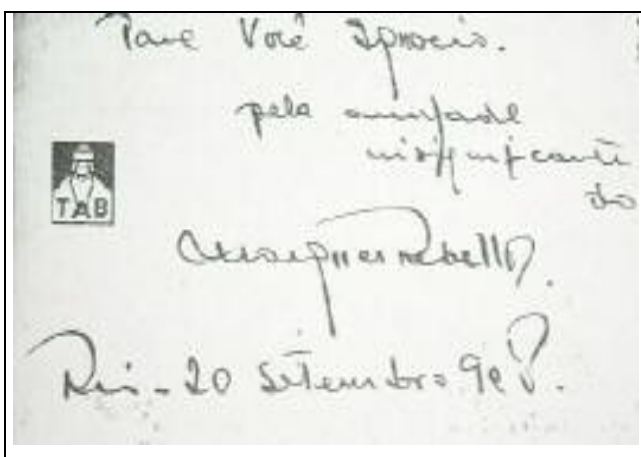 Para Você Ignacio.
pela amizade
insignificante
do
TAB
Rabello.
Rio - 20 Setembro